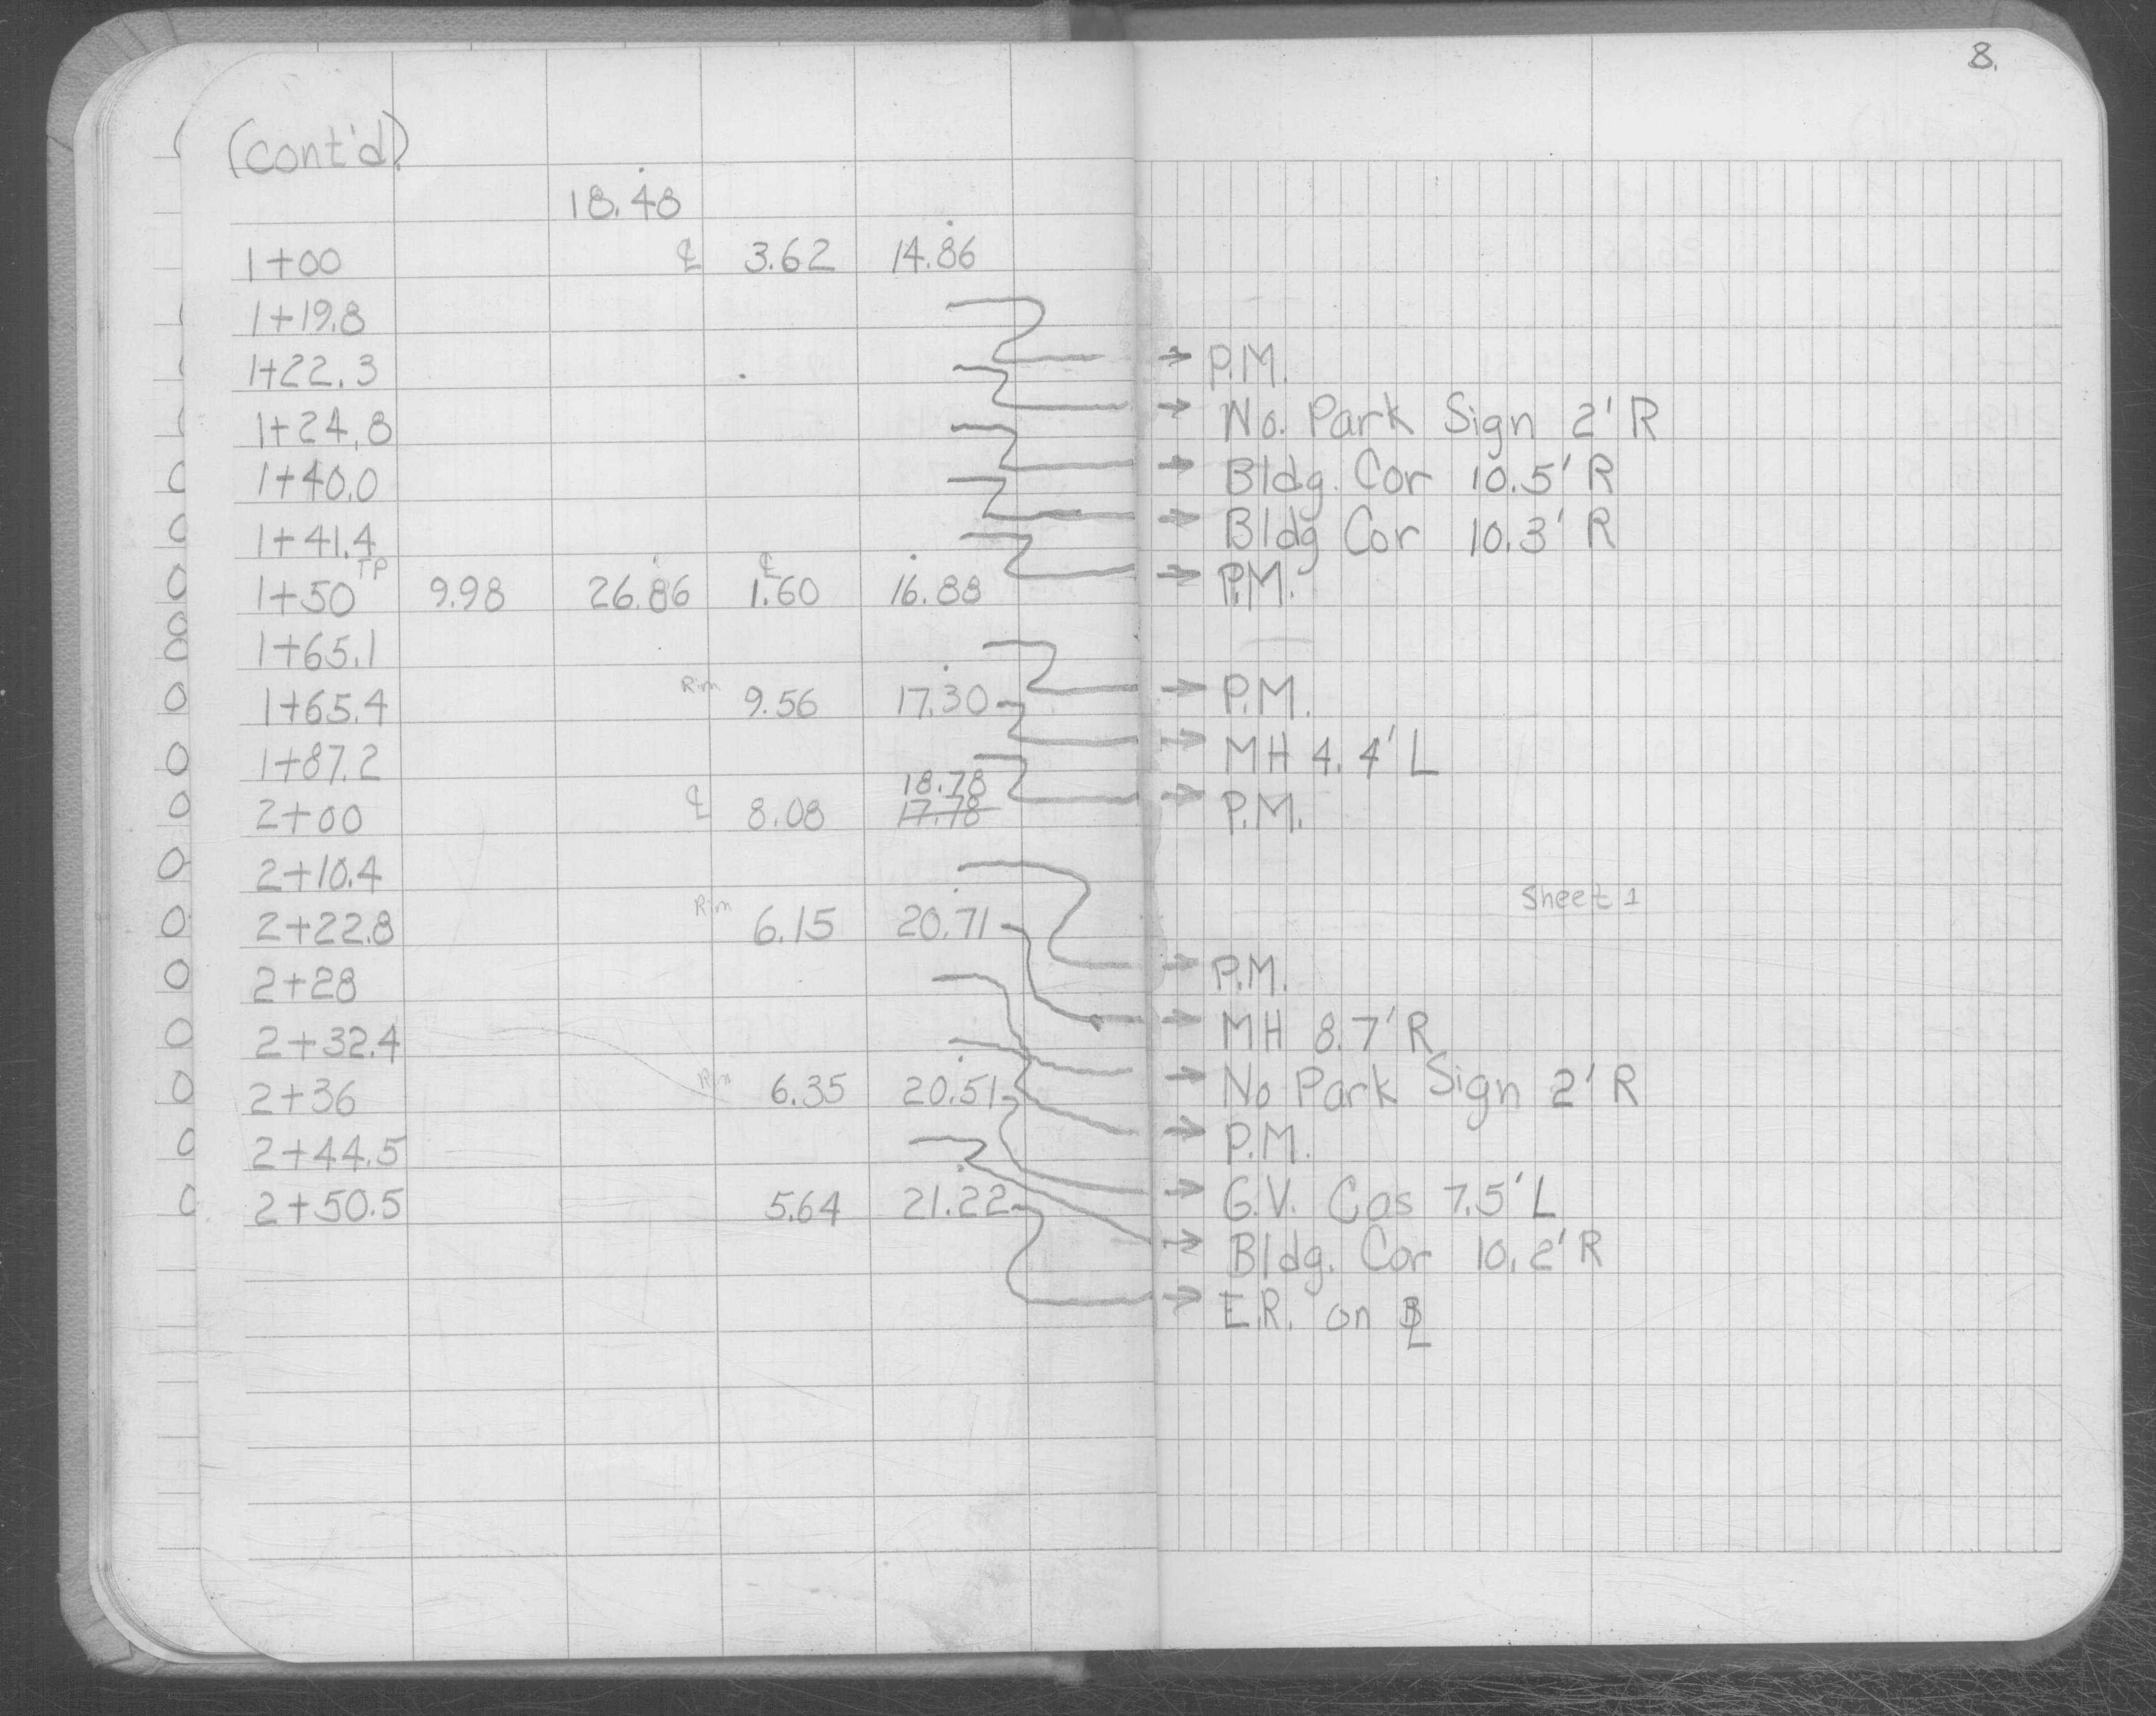 8.
(cont'd)
18.48
1+00 ℄ 3.62 14.86
1+19.8
1+22.3 → P.M.
1+24.8 → No. Park Sign 2' R
1+40.0 → Bldg. Cor 10.5' R
1+41.4 → Bldg Cor 10.3' R
1+50 TP 9.98 26.86 ℄ 1.60 16.88 → P.M.
1+65.1
1+65.4 Rim 9.56 17.30 → P.M.
1+87.2 → MH 4.4' L
18.78
2+00 ℄ 8.08 17.78 → P.M.
2+10.4
Sheet 1
2+22.8 Rim 6.15 20.71
2+28 → P.M.
2+32.4 → MH 8.7' R
2+36 Rim 6.35 20.51 → No Park Sign 2' R
2+44.5 → P.M.
2+50.5 5.64 21.22 → G.V. Cas 7.5' L
→ Bldg. Cor 10.2' R
→ E.R. on BL